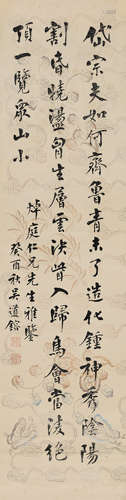 岱宗夫如何齊魯青未了造化鍾神秀陰陽
割昏曉盪胸生層雲決眥入歸鳥會當凌絕
頂一覽衆山小
焯庭仁兄先生雅鑒
癸酉秋吳道鎔